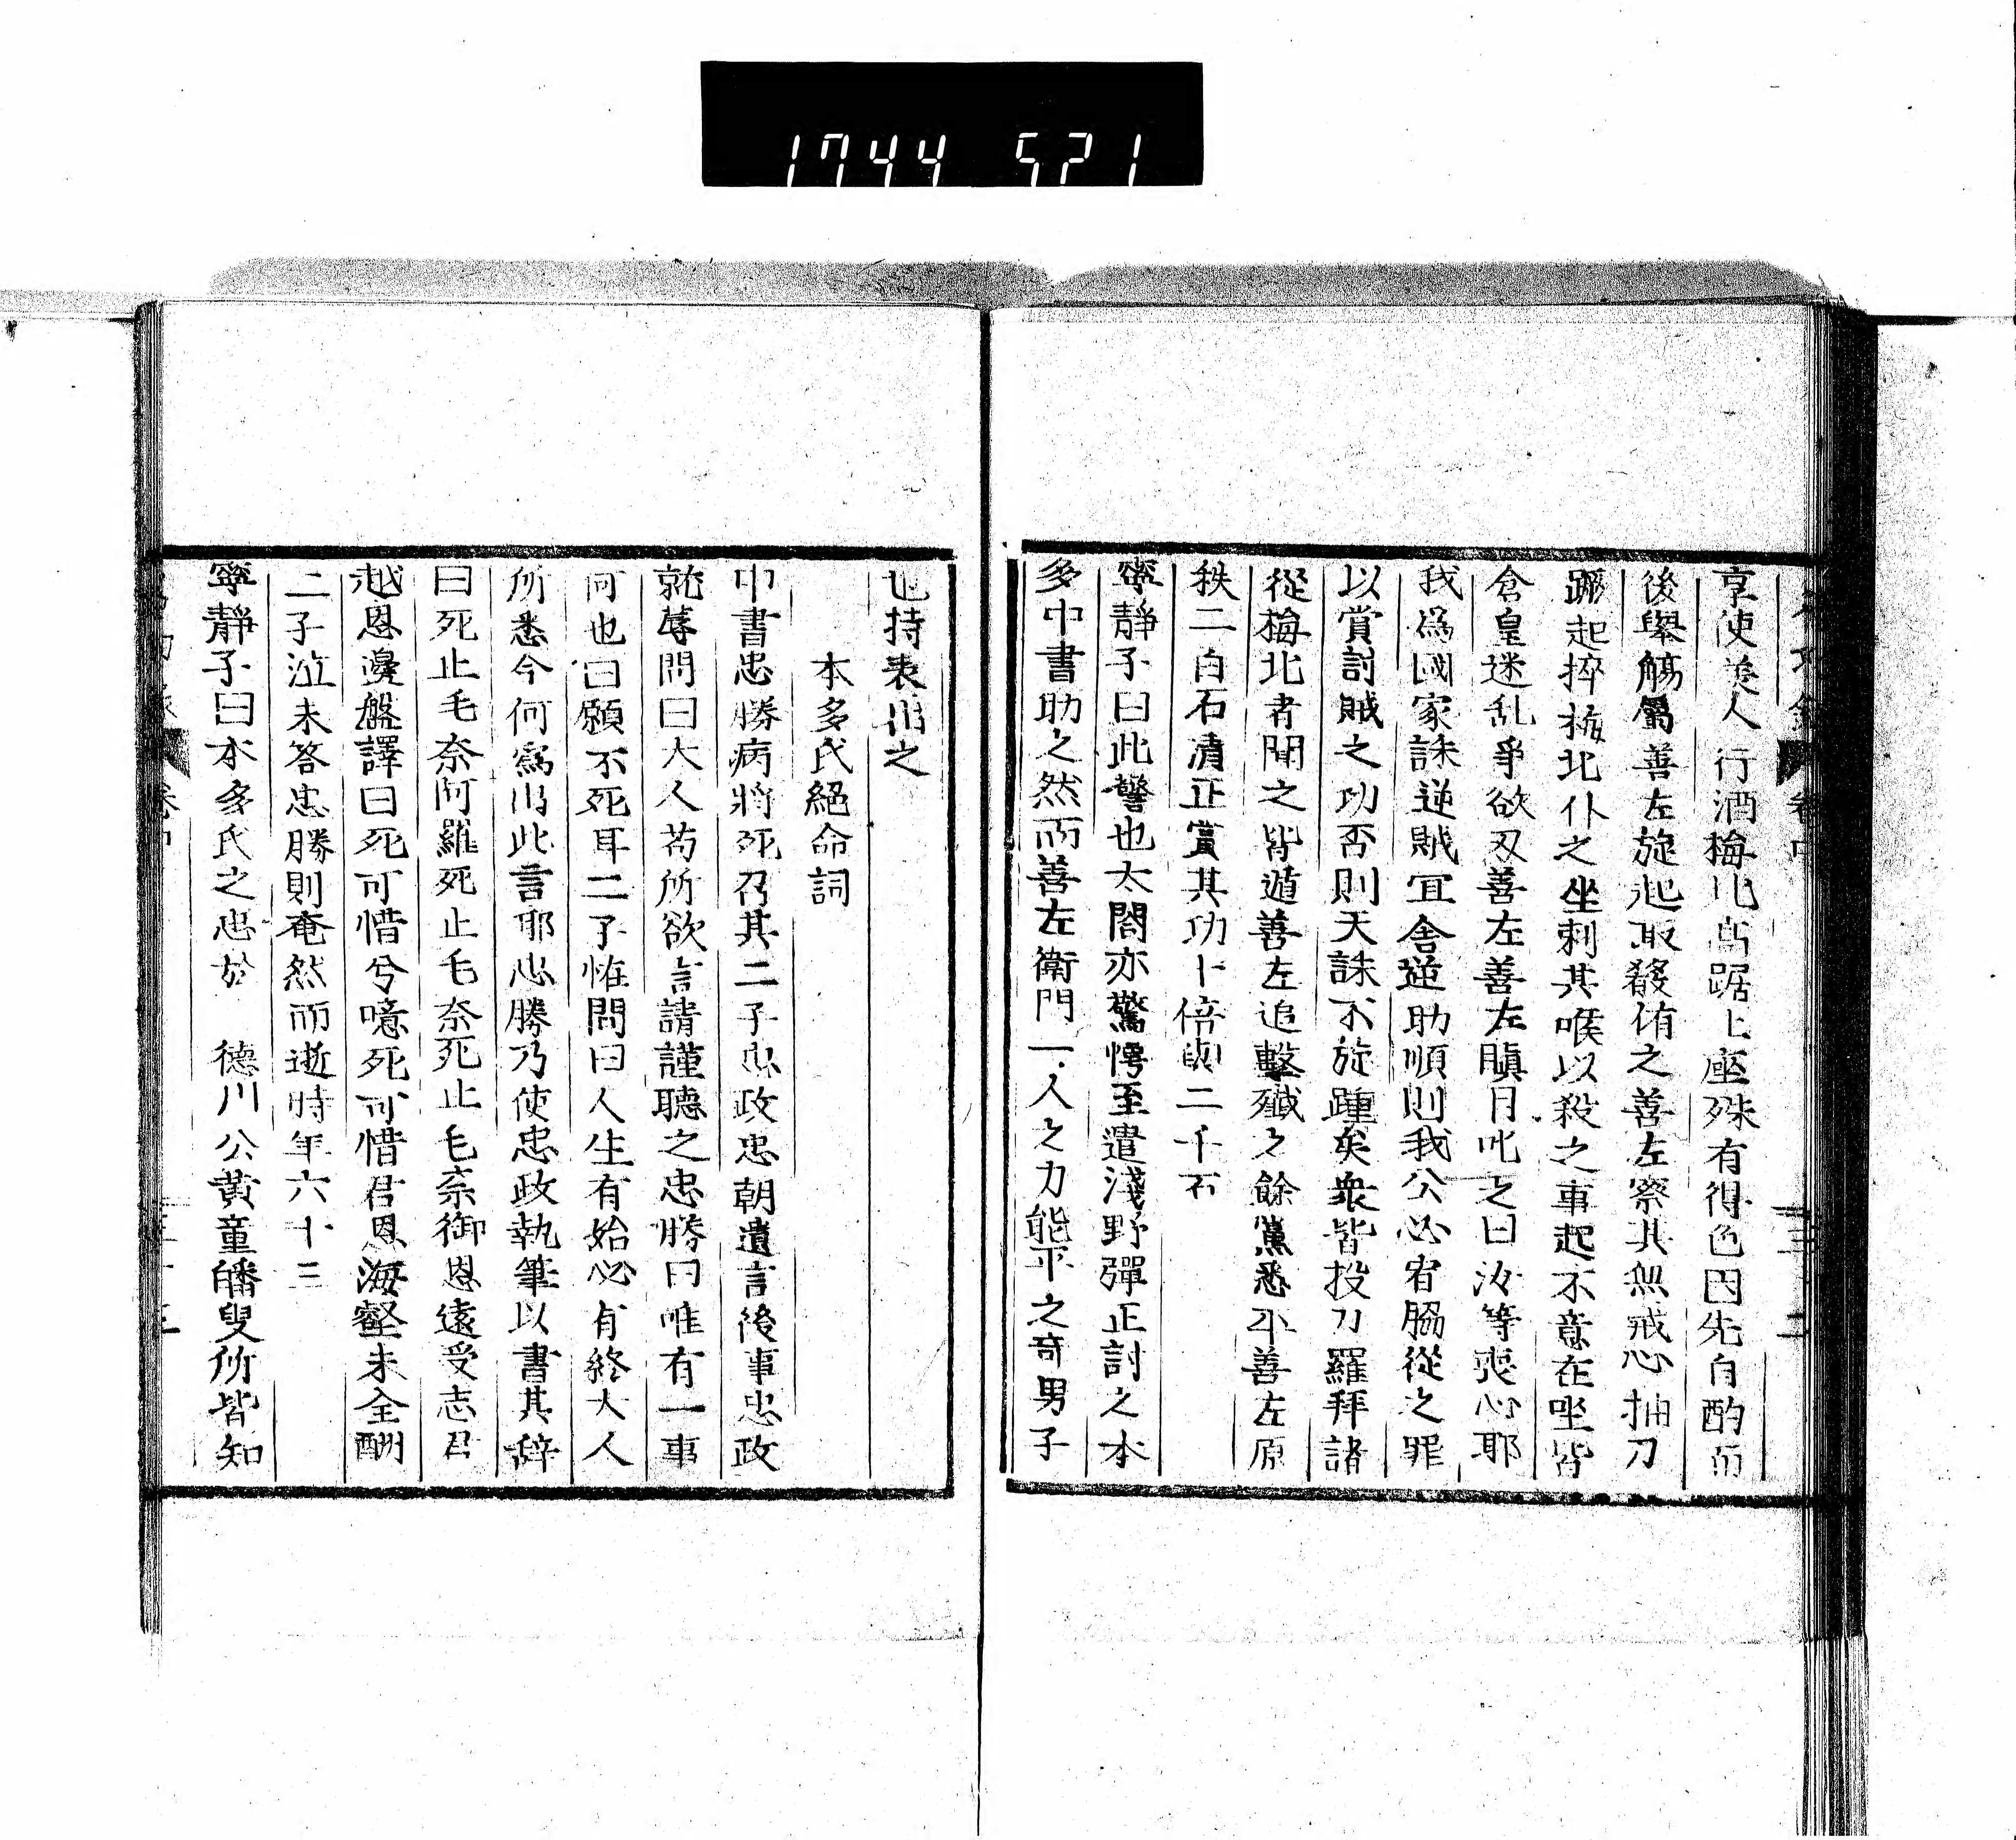 1744 521
享使美人行酒梅北高踞上座殊有得色因先自酌而
後舉觴屬善左旋起取殽侑之善左察其無戒心抽刀
蹶起捽梅北仆之坐刺其喉以殺之事起不意在坐皆
倉皇迷乱爭欲刃善左善左瞋目叱之曰汝等喪心耶
我爲國家誅逆賊冝舍逆助順則我公必宥脇從之罪
以賞討賊之功否則天誅不旋踵矣衆皆投刀羅拜諸
從梅北者聞之皆遁善左追擊殲之餘黨悉平善左原
秩二百石清正賞其功十倍與二千石
寧靜子曰此警也太閤亦驚愕至遣淺野彈正討之本
多中書助之然而善左衛門一人之力能平之奇男子
也持表出之
本多氏絕命詞
中書忠勝病將死召其二子忠政忠朝遺言後事忠政
就蓐問曰大人苟所欲言請謹聽之忠勝曰唯有一事
何也曰願不死耳二子恠問曰人生有始必有終大人
所悉今何爲出此言耶忠勝乃使忠政執筆以書其辞
曰死止毛奈阿羅死止毛奈死止毛奈御恩遠受志君
越恩邊盤譯曰死可惜兮噫死可惜君恩海壑未全酬
二子泣未答忠勝則奄然而逝時年六十三
寧靜子曰本多氏之忠於　德川公黃童皤叟所皆知